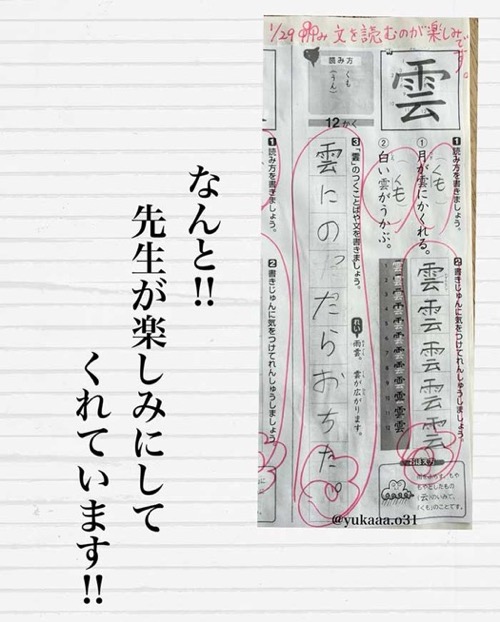 1/29
文を読むのが楽しみです。
雲
1 読み方を書きましょう。
① 月が雲にかくれる。
くも
② 白い雲がうかぶ。
くも
2 書きじゅんに気をつけてれんしゅうしましょう。
雲雲雲雲雲
読み方
くも
(うん)
12かく
3 「雲」のつくことばや文を書きましょう。
れい 雨雲。 雲が広がります。
雲にのったらおちた。
1 読み方を書きましょう。
2 書きじゅんに気をつけてれんしゅうしましょう。
「くも」のことです。
@yukaaa.o31
なんと!!
先生が楽しみにして
くれています!!